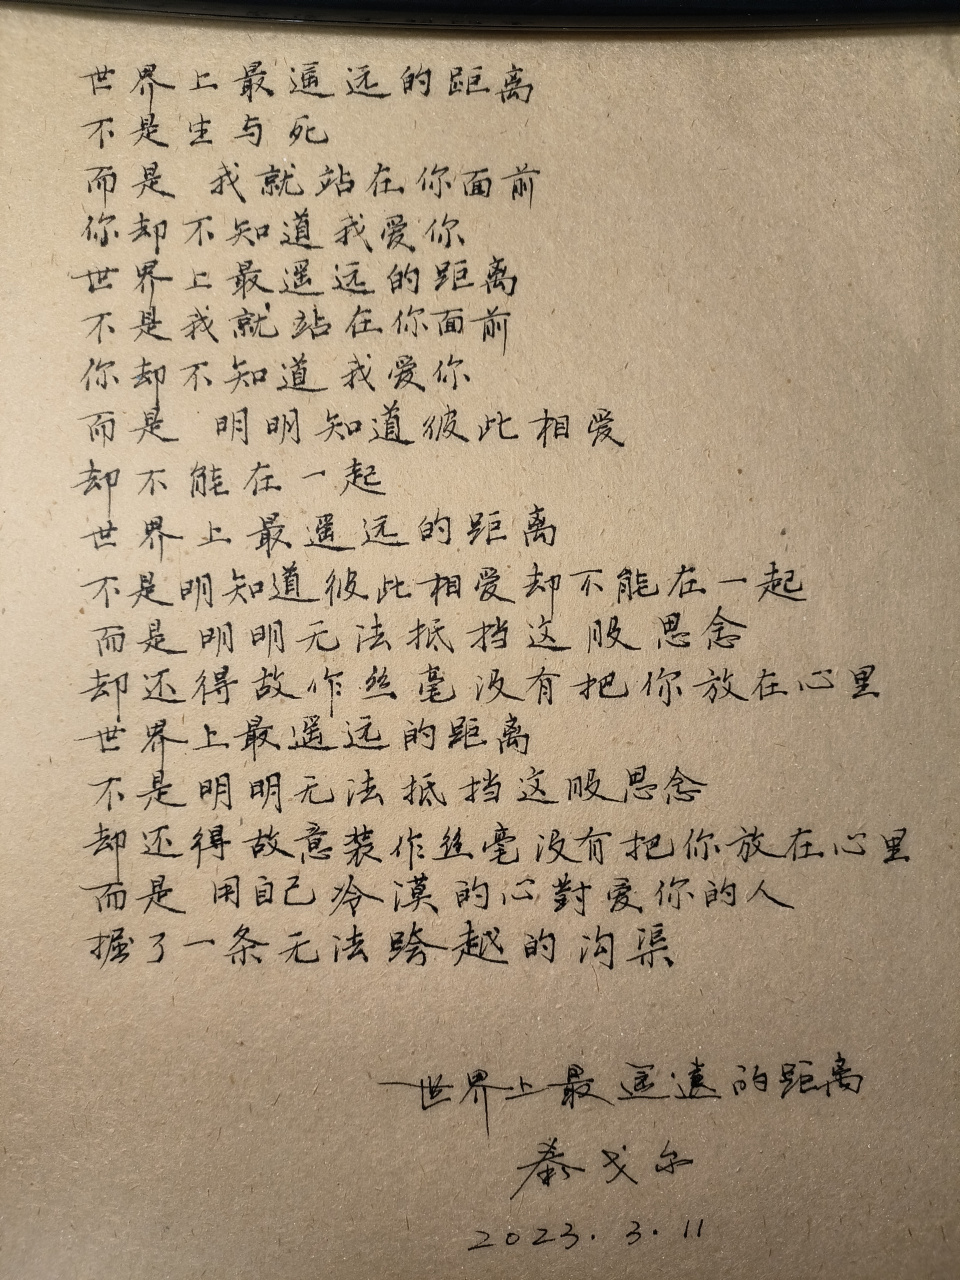 世界上最遥远的距离
不是生与死
而是 我就站在你面前
你却不知道我爱你
世界上最遥远的距离
不是我就站在你面前
你却不知道我爱你
而是 明明知道彼此相爱
却不能在一起
世界上最遥远的距离
不是明知道彼此相爱却不能在一起
而是明明无法抵挡这股思念
却还得故作丝毫没有把你放在心里
世界上最遥远的距离
不是明明无法抵挡这股思念
却还得故意装作丝毫没有把你放在心里
而是 用自己冷漠的心對爱你的人
掘了一条无法跨越的沟渠
—世界上最遥遠的距离
泰戈尔
2023.3.11